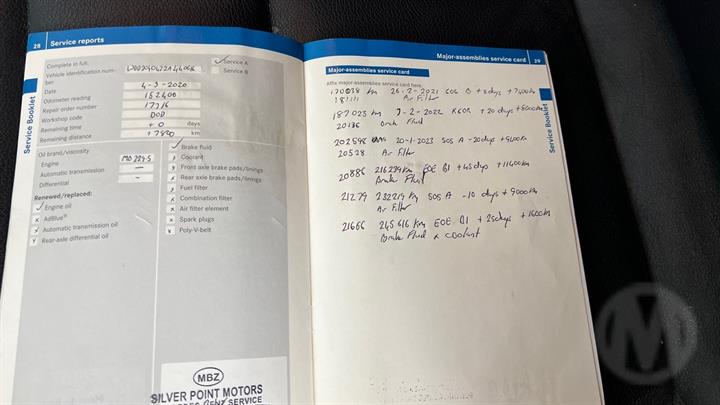 28 Service reports
Service Booklet
Complete in full:
Vehicle identification number
Service A
Service B
Date
4-3-2020
Odometer reading
152400
Repair order number
17716
Workshop code
DOD
Remaining time
+0 days
Remaining distance
+7890 km
Oil brand/viscosity
Engine
MB 229.5
Automatic transmission
—
Differential
—
Renewed/replaced:
Engine oil
AdBlue®
Automatic transmission oil
Rear-axle differential oil
Brake fluid
Coolant
Front axle brake pads/linings
Rear axle brake pads/linings
Fuel filter
Combination filter
Air filter element
Spark plugs
Poly-V-belt
MBZ
SILVER POINT MOTORS
SERVICE
Major-assemblies service card 29
Service Booklet
Major-assemblies service card
Affix major-assemblies service card here.
Km 26-2-2021 B + days +7400 Km
Air Filter
187023 Km 7-2-2022 +20 days +5000 Km
20136 Brake Fluid
202598 20-1-2023 SOS A -20 days
20528 Air Filter
20886 216239 Km EOE B1 +45 days +11400 Km
Brake Fluid
21279 232219 Km SOS A -10 days +9000 Km
Air Filter
21666 245616 Km EOE B1 +25 days +1600 Km
Brake Fluid & Coolant
M